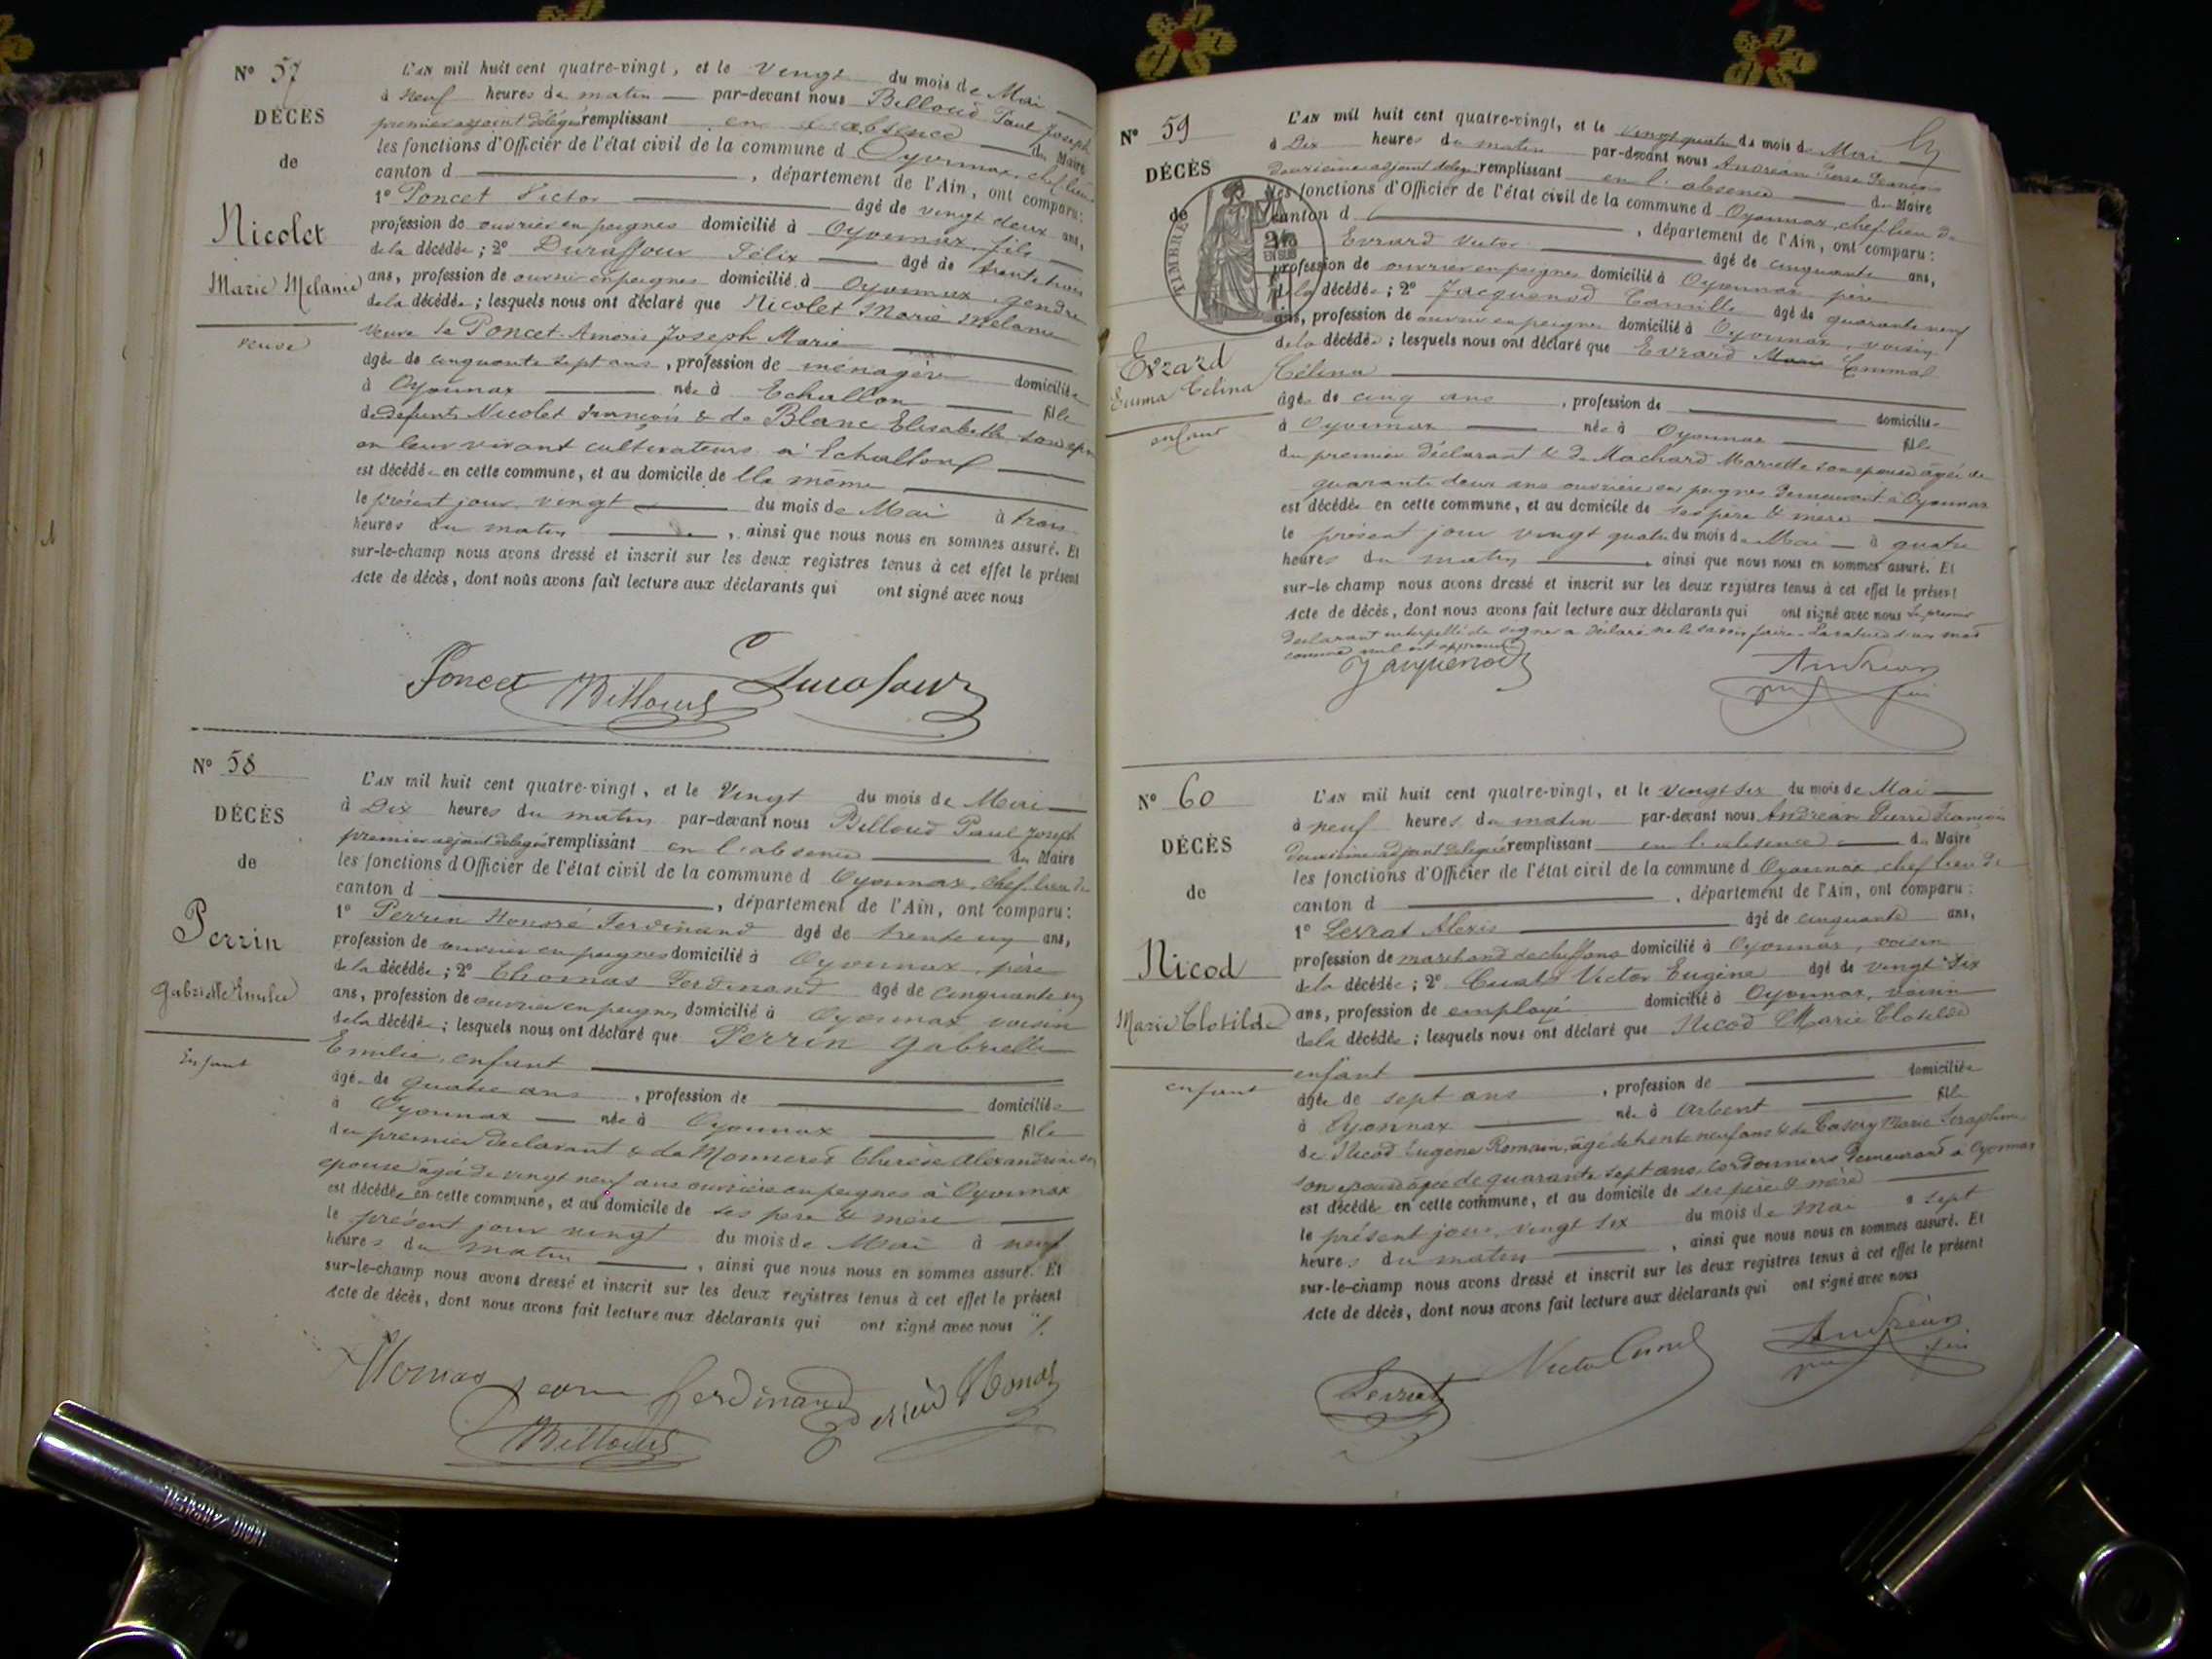 N° 57
DÉCÈS
de
Nicolet
Marie Mélanie
veuve
L'AN mil huit cent quatre-vingt, et le vingt du mois de Mai
à neuf heures du matin par-devant nous Billoud Paul Joseph
premier adjoint délégué remplissant en l'absence du Maire
les fonctions d'Officier de l'état civil de la commune d'Oyonnax, chef lieu
canton d , département de l'Ain, ont comparu:
1° Poncet Victor âgé de vingt deux ans,
profession de ouvrier en peignes domicilié à Oyonnax, fils
de la décédée; 2° Duraffour Félix âgé de trente trois
ans, profession de ouvrier en peignes domicilié à Oyonnax, gendre
de la décédée; lesquels nous ont déclaré que Nicolet Marie Mélanie
veuve de Poncet Joseph Marie
âgée de cinquante sept ans, profession de ménagère domiciliée
à Oyonnax née à Echallon fille
de défunts Nicolet François & de Blanc Elisabeth son
en leur vivant cultivateurs à Echallon
est décédée en cette commune, et au domicile de elle même
le présent jour vingt du mois de Mai à trois
heures du matin, ainsi que nous nous en sommes assuré. Et
sur-le-champ nous avons dressé et inscrit sur les deux registres tenus à cet effet le présent
Acte de décès, dont nous avons fait lecture aux déclarants qui ont signé avec nous
Poncet Billoud Durafour
N° 58
DÉCÈS
de
Perrin
Gabrielle Emilie
Enfant
L'AN mil huit cent quatre-vingt, et le Vingt du mois de Mai
à Dix heures du matin par-devant nous Billoud Paul Joseph
premier adjoint délégué remplissant en l'absence du Maire
les fonctions d'Officier de l'état civil de la commune d Oyonnax, chef lieu de
canton d , département de l'Ain, ont comparu:
1° Perrin Honoré Ferdinand âgé de trente un ans,
profession de ouvrier en peignes domicilié à Oyonnax, père
de la décédée; 2° Thomas Ferdinand âgé de cinquante un
ans, profession de ouvrier en peignes domicilié à Oyonnax voisin
de la décédée; lesquels nous ont déclaré que Perrin Gabrielle
Emilie, enfant
âgée de quatre ans, profession de domiciliée
à Oyonnax née à Oyonnax fille
du premier déclarant & de Monneret Thérèse Alexandrine son
épouse âgée de vingt neuf ans ouvrière en peignes à Oyonnax
est décédée en cette commune, et au domicile de ses père & mère
le présent jour vingt du mois de Mai à neuf
heures du matin, ainsi que nous nous en sommes assuré. Et
sur-le-champ nous avons dressé et inscrit sur les deux registres tenus à cet effet le présent
Acte de décès, dont nous avons fait lecture aux déclarants qui ont signé avec nous
Thomas ferdinand
Billoud
N° 59
DÉCÈS
de
TIMBRE
EN SUS
Evrard
Emma Célina
enfant
L'AN mil huit cent quatre-vingt, et le vingt quatre du mois de Mai
à Dix heures du matin par-devant nous Andréan Pierre François
deuxième adjoint délégué remplissant en l'absence du Maire
les fonctions d'Officier de l'état civil de la commune d Oyonnax, chef lieu de
canton d , département de l'Ain, ont comparu:
Evrard Victor âgé de cinquante ans,
profession de ouvrier en peignes domicilié à Oyonnax père
de la décédée; 2° Jacquenod Camille âgé de quarante neuf
ans, profession de ouvrier en peignes domicilié à Oyonnax, voisin
de la décédée; lesquels nous ont déclaré que Evrard Marie Emma
Célina
âgée de cinq ans, profession de domiciliée
à Oyonnax née à Oyonnax fille
du premier déclarant & de Machard Mariette son épouse âgée de
quarante deux ans ouvrière en peignes demeurant à Oyonnax
est décédée en cette commune, et au domicile de ses père & mère
le présent jour vingt quatre du mois de Mai à quatre
heures du matin, ainsi que nous nous en sommes assuré. Et
sur-le champ nous avons dressé et inscrit sur les deux registres tenus à cet effet le présent
Acte de décès, dont nous avons fait lecture aux déclarants qui ont signé avec nous le premier
déclarant interpellé de signer a déclaré ne le savoir faire. La rature d'un mot
comme nul est approuvée
Jacquenod Andréan
N° 60
DÉCÈS
de
Nicod
Marie Clotilde
enfant
L'AN mil huit cent quatre-vingt, et le vingt six du mois de Mai
à neuf heures du matin par-devant nous Andréan Pierre François
deuxième adjoint délégué remplissant en l'absence du Maire
les fonctions d'Officier de l'état civil de la commune d Oyonnax, chef lieu de
canton d , département de l'Ain, ont comparu:
1° Levrat Alexis âgé de cinquante ans,
profession de marchand de chiffons domicilié à Oyonnax, voisin
de la décédée; 2° Victor Eugène âgé de vingt six
ans, profession de employé domicilié à Oyonnax, voisin
de la décédée; lesquels nous ont déclaré que Nicod Marie Clotilde
enfant
âgée de sept ans, profession de domiciliée
à Oyonnax née à Arbent fille
de Nicod Eugène Romain, âgé de trente neuf ans & de Marie Séraphine
son épouse âgée de quarante sept ans, cordonniers demeurant à Oyonnax
est décédée en cette commune, et au domicile de ses père & mère
le présent jour vingt six du mois de Mai à sept
heures du matin, ainsi que nous nous en sommes assuré. Et
sur-le-champ nous avons dressé et inscrit sur les deux registres tenus à cet effet le présent
Acte de décès, dont nous avons fait lecture aux déclarants qui ont signé avec nous
Levrat Victor Andréan